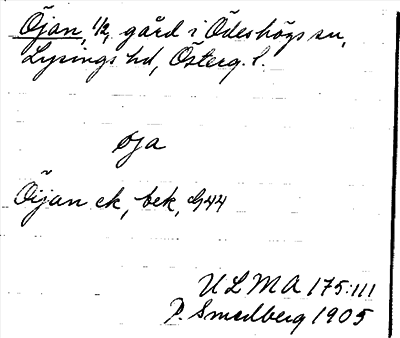 Öjan, 1/2, gård i Ödeshögs sn,
Lysings hd, Österg. l.
øja
Öijan ek, bek, G44
ULMA 175:111
P. Smedberg 1905